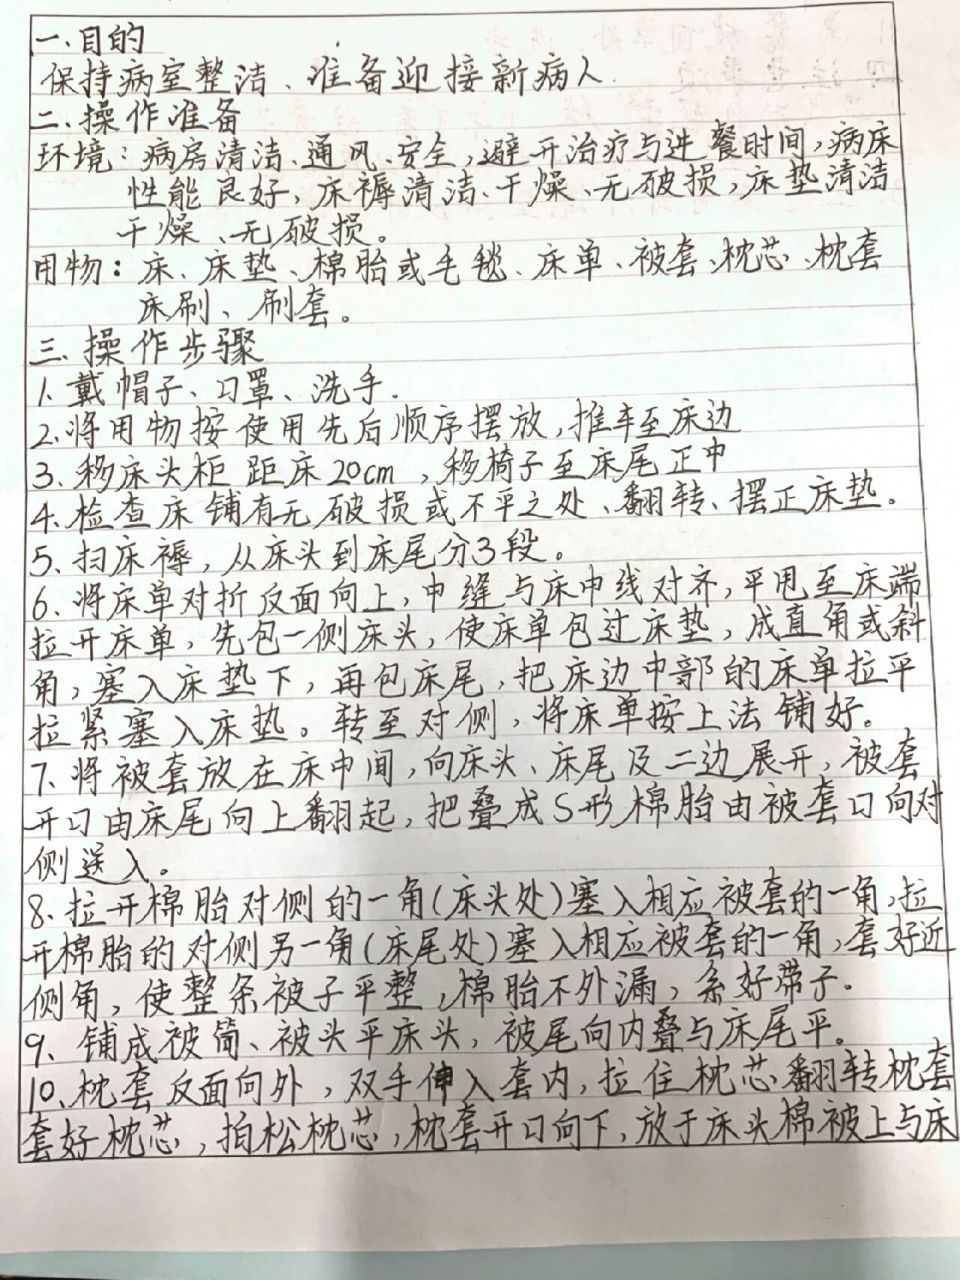 一.目的
保持病室整洁、准备迎接新病人.
二.操作准备
环境：病房清洁、通风、安全,避开治疗与进餐时间,病床
性能良好,床褥清洁、干燥、无破损,床垫清洁
干燥、无破损。
用物：床、床垫、棉胎或毛毯、床单、被套、枕芯、枕套
床刷、刷套。
三.操作步骤
1.戴帽子、口罩、洗手.
2.将用物按使用先后顺序摆放,推车至床边
3.移床头柜距床20cm,移椅子至床尾正中
4.检查床铺有无破损或不平之处、翻转、摆正床垫。
5、扫床褥,从床头到床尾分3段。
6、将床单对折反面向上,中缝与床中线对齐,平甩至床端
拉开床单,先包一侧床头,使床单包过床垫,成直角或斜
角,塞入床垫下,再包床尾,把床边中部的床单拉平
拉紧塞入床垫。转至对侧,将床单按上法铺好。
7、将被套放在床中间,向床头、床尾及二边展开,被套
开口由床尾向上翻起,把叠成S形棉胎由被套口向对
侧送入。
8、拉开棉胎对侧的一角(床头处)塞入相应被套的一角,拉
开棉胎的对侧另一角(床尾处)塞入相应被套的一角,套好近
侧角,使整条被子平整,棉胎不外漏,系好带子.
9、铺成被筒、被头平床头,被尾向内叠与床尾平。
10、枕套反面向外,双手伸入套内,拉住枕芯翻转枕套
套好枕芯,拍松枕芯,枕套开口向下,放于床头棉被上与床